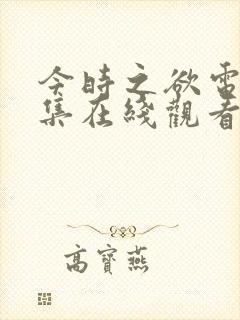 今時之欲電
集在綫觀看
高寶燕